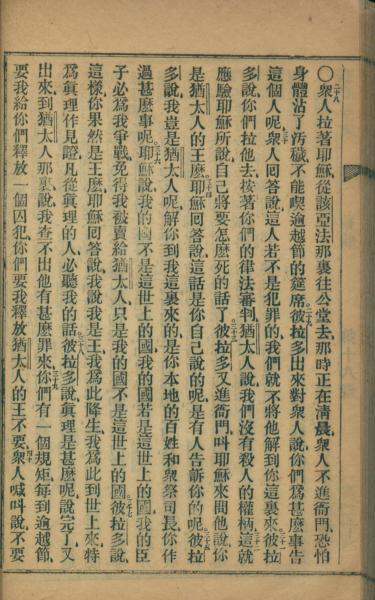 〇二十八衆人拉著耶穌從該亞法那裏往公堂去那時正在淸晨衆人不進衙門恐怕
身體沾了汚穢不能喫逾越節的筵席彼拉多出來對衆人說你們爲甚麽事告
這個人呢三十衆人回答說這人若不是犯罪的我們就不將他解到你這裏來彼拉
多說你們拉他去按著你們的律法審判猶太人說我們沒有殺人的權柄這就
應驗耶穌所說自己將要怎麽死的話了彼拉多又進衙門叫耶穌來問他說你
是猶太人的王麽耶穌回答說這話是你自己說的呢是有人告訴你的呢彼拉
多說我豈是猶太人呢解你到我這裏來的是你本地的百姓和衆祭司長你作
過甚麽事呢耶穌說我的國不是這世上的國我的國若是這世上的國我的臣
子必爲我爭戰免得我被賣給猶太人只是我的國不是這世上的國彼拉多說
這樣你果然是王麽耶穌回答說我說我是王我爲此降生我爲此到世上來特
爲眞理作見證凡從眞理的人必聽我的話彼拉多說眞理是甚麽呢說完了又
出來到猶太人那裏說我查不出他有甚麽罪來你們有一個規矩每到逾越節
要我給你們釋放一個囚犯你們要我釋放猶太人的王不要衆人喊叫說不要